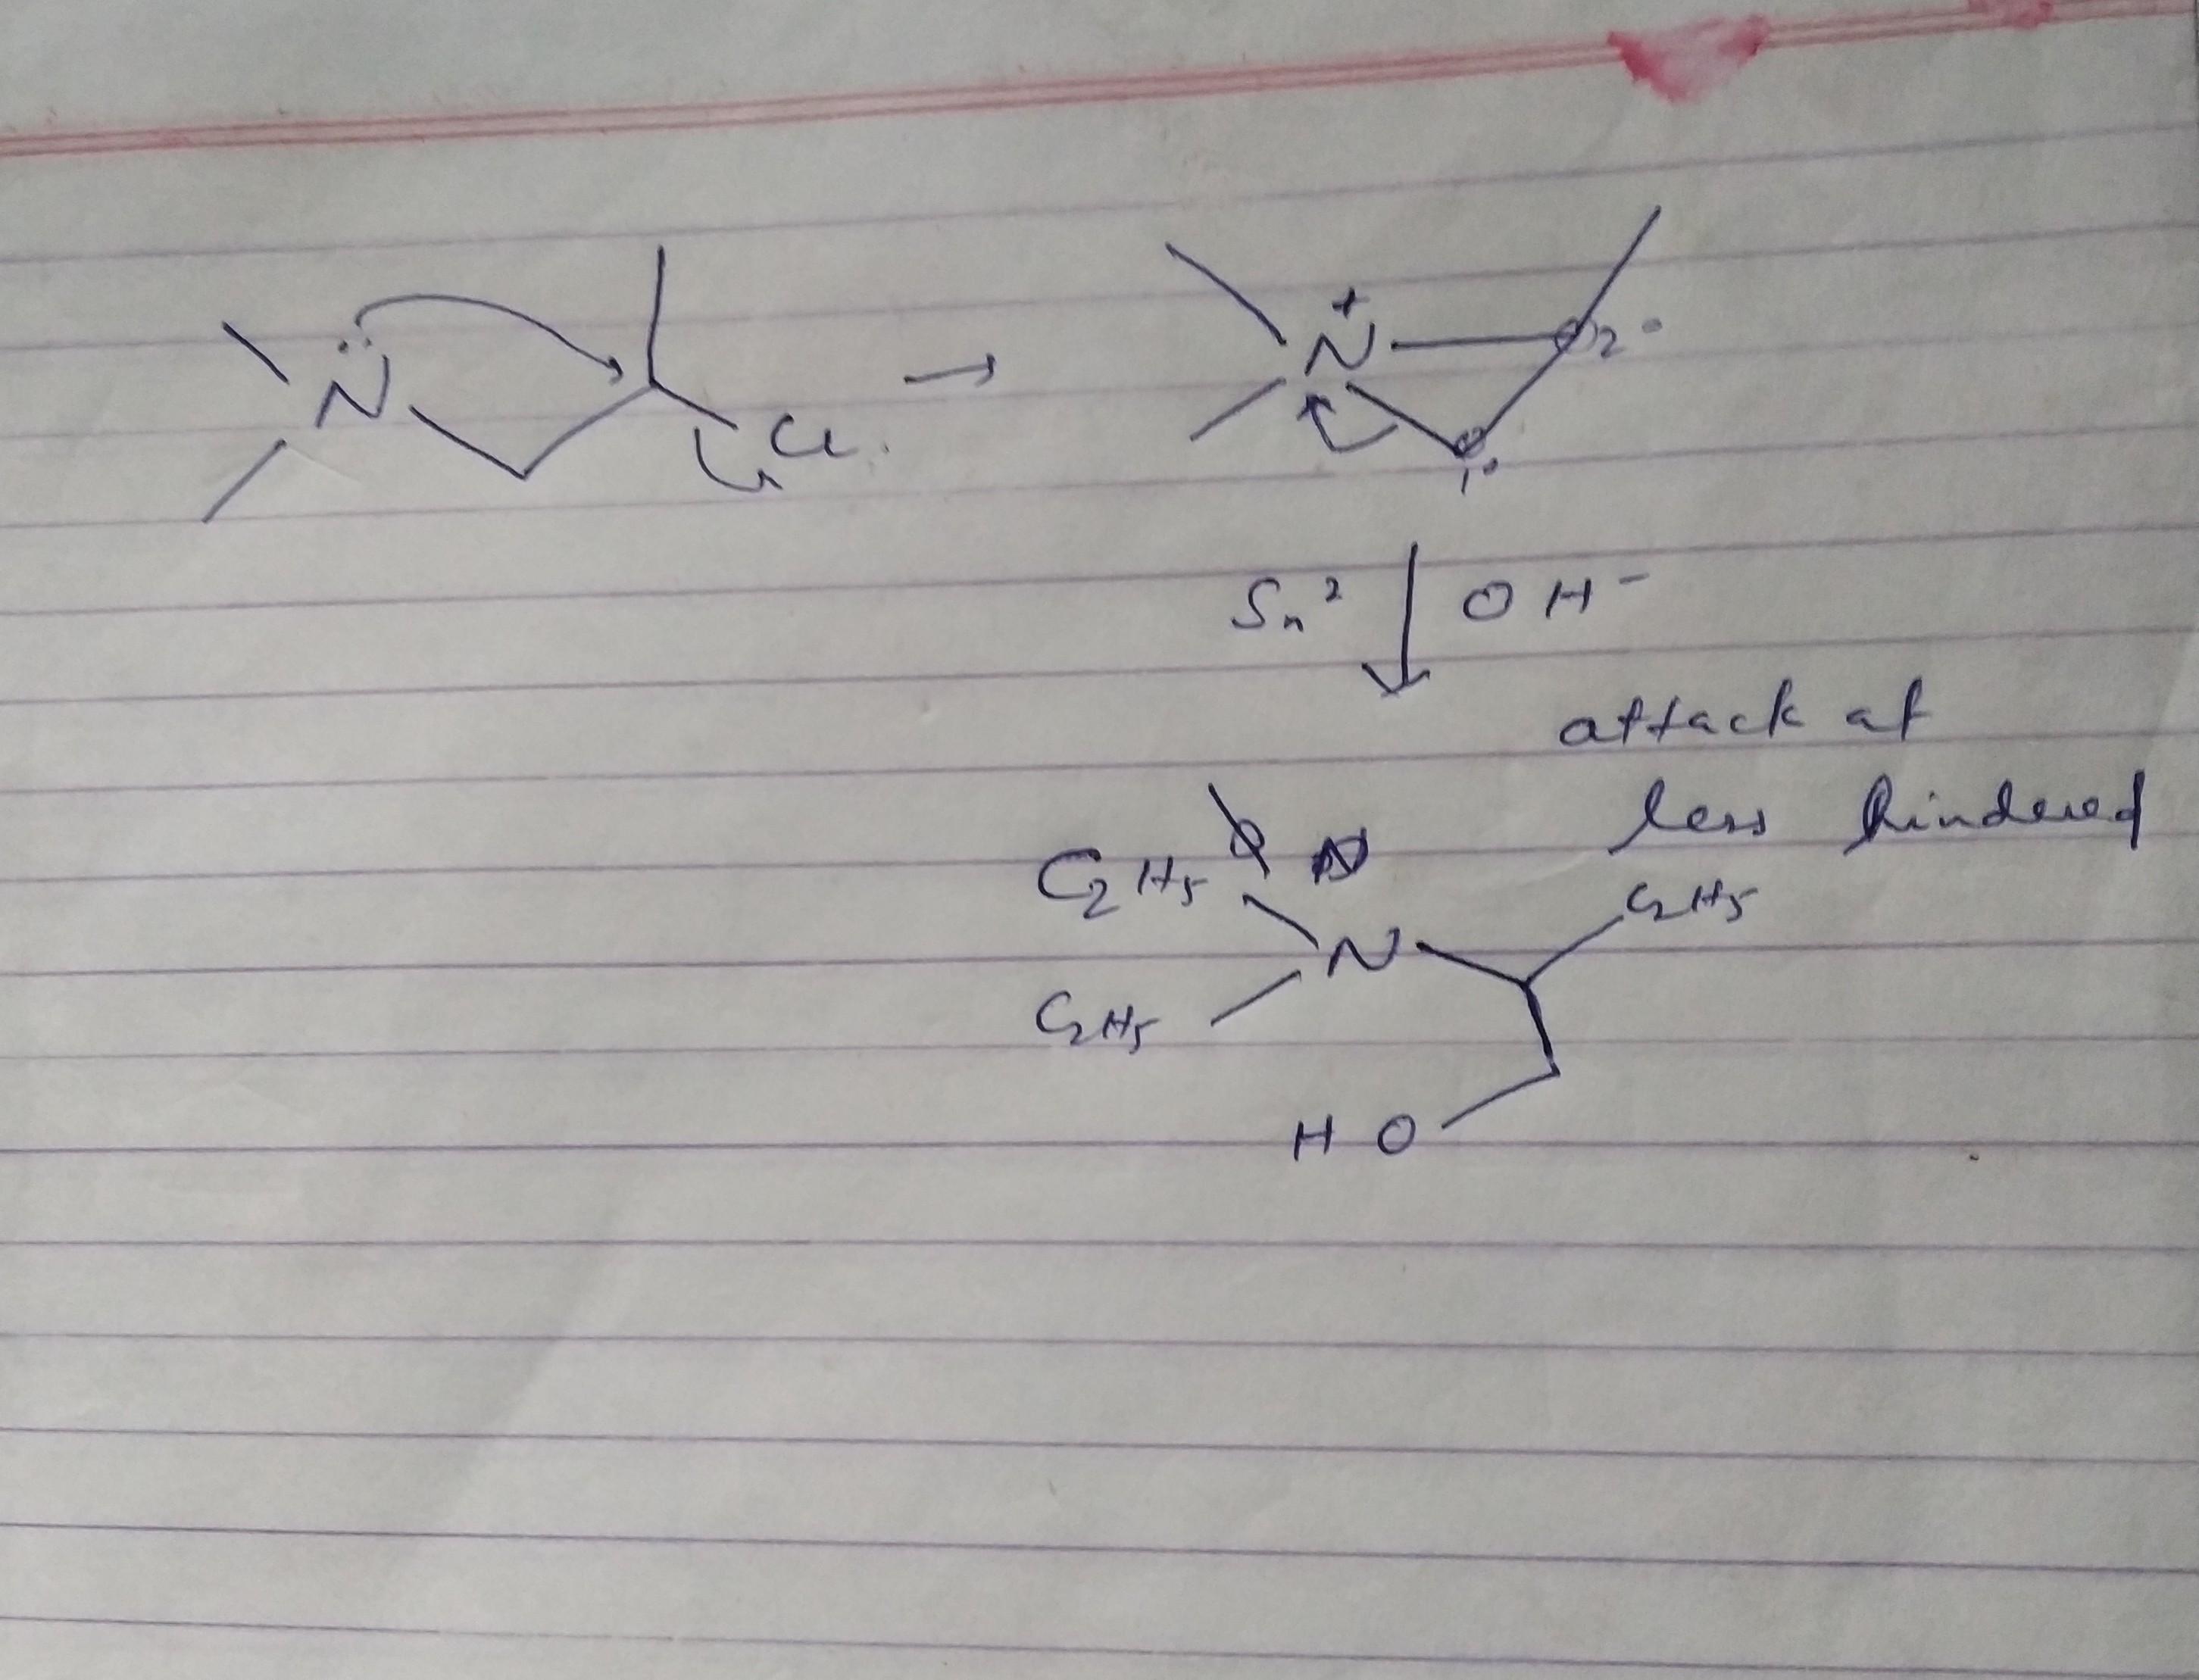 N̈
Cl
N⁺
2°
1°
Sn² OH⁻
attack at
less hindered
C₂H₅
C₂H₅
N
C₂H₅
HO